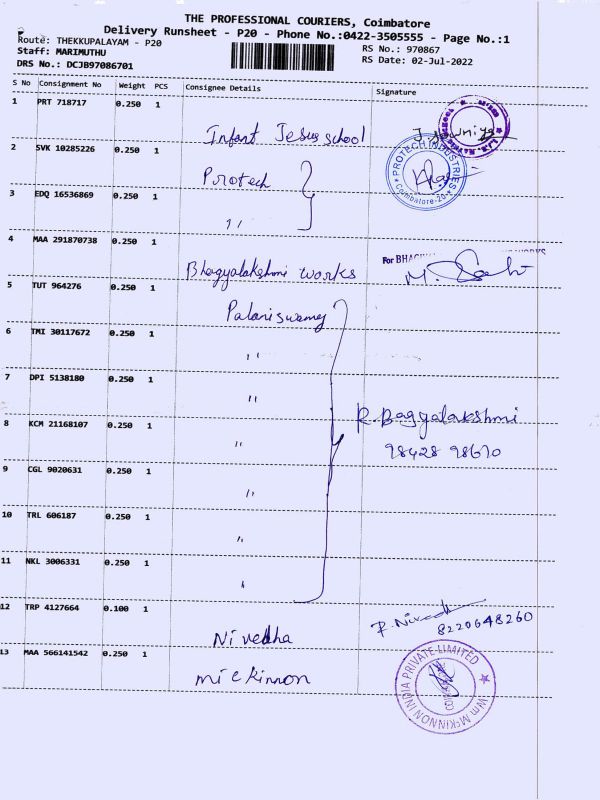 THE PROFESSIONAL COURIERS, Coimbatore
Delivery Runsheet - P20 - Phone No.:0422-3505555 - Page No.:1
Route: THEKKUPALAYAM - P20
Staff: MARIMUTHU
DRS No.: DCJB97086701
RS No.: 970867
RS Date: 02-Jul-2022
S No Consignment No Weight PCS Consignee Details Signature
1 PRT 718717 0.250 1 Infant Jesus school
2 SVK 10285226 0.250 1 Protech
PROTECH INDUSTRIES
Coimbatore-20
3 EDQ 16536869 0.250 1 "
4 MAA 291870738 0.250 1 Bhagyalakshmi works
For
5 TUT 964276 0.250 1 Palaniswamy
6 TMI 30117672 0.250 1 "
7 DPI 5138180 0.250 1 "
8 KCM 21168107 0.250 1 "
R. Baggyalakshmi
98428 98670
9 CGL 9020631 0.250 1 "
10 TRL 606187 0.250 1 "
11 NKL 3006331 0.250 1 "
12 TRP 4127664 0.100 1 Nivedha
8220648260
13 MAA 566141542 0.250 1 mickinnon
Wm McKINNON INDIA PRIVATE LIMITED